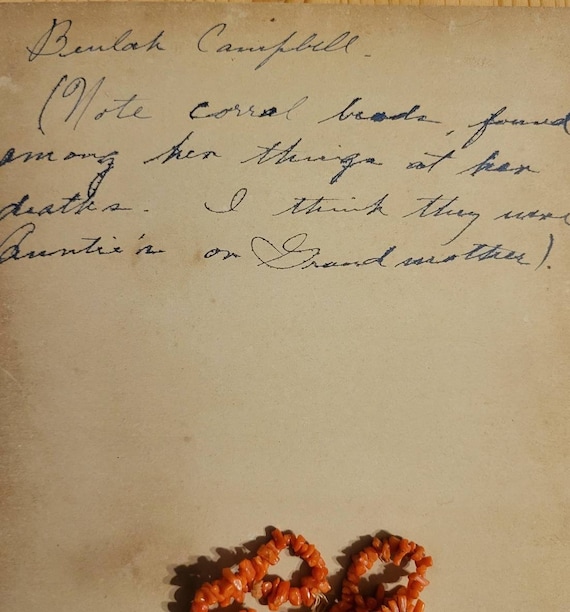 Beulah Campbell.
(Note corral beads, found
among her things at her
deaths. I think they were
Auntie's or Grandmother).